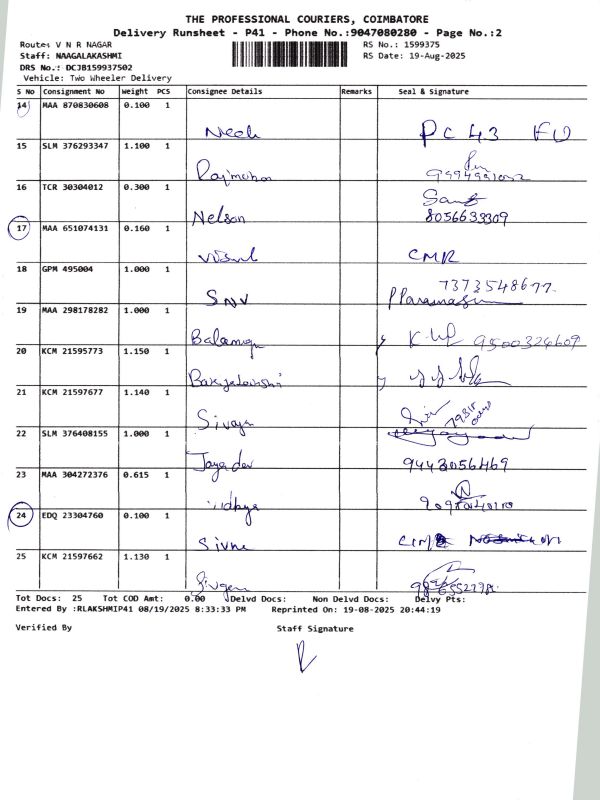 THE PROFESSIONAL COURIERS, COIMBATORE
Delivery Runsheet - P41 - Phone No.:9047080280 - Page No.:2
Route: V N R NAGAR RS No.: 1599375
Staff: NAAGALAKASHMI RS Date: 19-Aug-2025
DRS No.: DCJB159937502
Vehicle: Two Wheeler Delivery
S No Consignment No Weight PCS Consignee Details Remarks Seal & Signature
14 MAA 870830608 0.100 1
PC 43 FU
15 SLM 376293347 1.100 1
Rajmohan
16 TCR 30304012 0.300 1
Nelson 8056633309
17 MAA 651074131 0.160 1
CMR
18 GPM 495004 1.000 1
SNV
19 MAA 298178282 1.000 1
9500324609
20 KCM 21595773 1.150 1
21 KCM 21597677 1.140 1
22 SLM 376408155 1.000 1
Jayadev 9443056469
23 MAA 304272376 0.615 1
24 EDQ 23304760 0.100 1
25 KCM 21597662 1.130 1
Tot Docs: 25 Tot COD Amt: 0.00 Delvd Docs: Non Delvd Docs: Delvy Pts:
Entered By :RLAKSHMIP41 08/19/2025 8:33:33 PM Reprinted On: 19-08-2025 20:44:19
Verified By Staff Signature